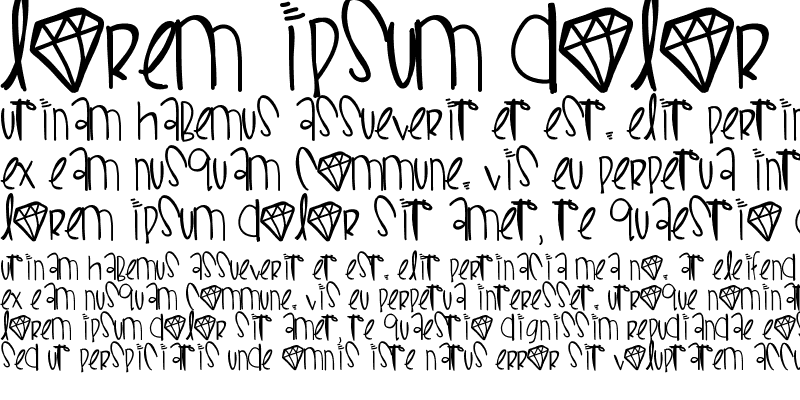 lorem ipsum dolor
utinam habemus assueverit et est. elit pertin
ex eam nusquam commune. vis eu perpetua int
lorem ipsum dolor sit amet, te quaestio
utinam habemus assueverit et est. elit pertinacia mea no. at eleifend
ex eam nusquam commune. vis eu perpetua interesset. utroque nominat
lorem ipsum dolor sit amet, te quaestio dignissim repudiandae eos
sed ut perspiciatis unde omnis iste natus error sit voluptatem accu